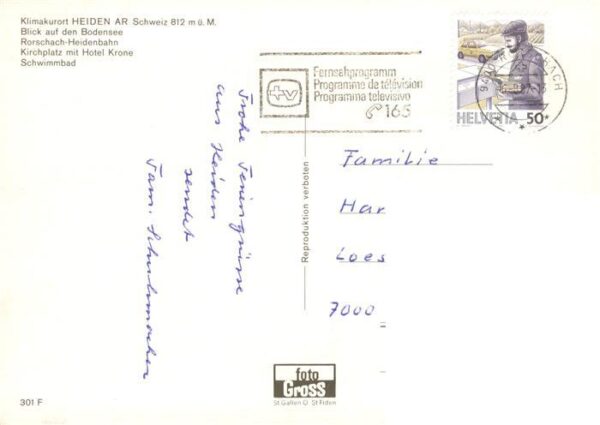 Klimakurort HEIDEN AR Schweiz 812 m ü. M.
Blick auf den Bodensee
Rorschach-Heidenbahn
Kirchplatz mit Hotel Krone
Schwimmbad
Fernsehprogramm
Programme de télévision
Programma televisivo
165
tv
HELVETIA 50
Frohe Feriengrüsse
aus Heiden
sendet
Fam.
Familie
Har
Loes
7000
Reproduktion verboten
foto
Gross
St Gallen O. St Fiden
301 F